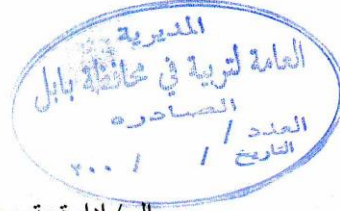 المديرية
العامة لتربية في محافظة بابل
الصادره
العدد /
التاريخ / / ٢٠٠